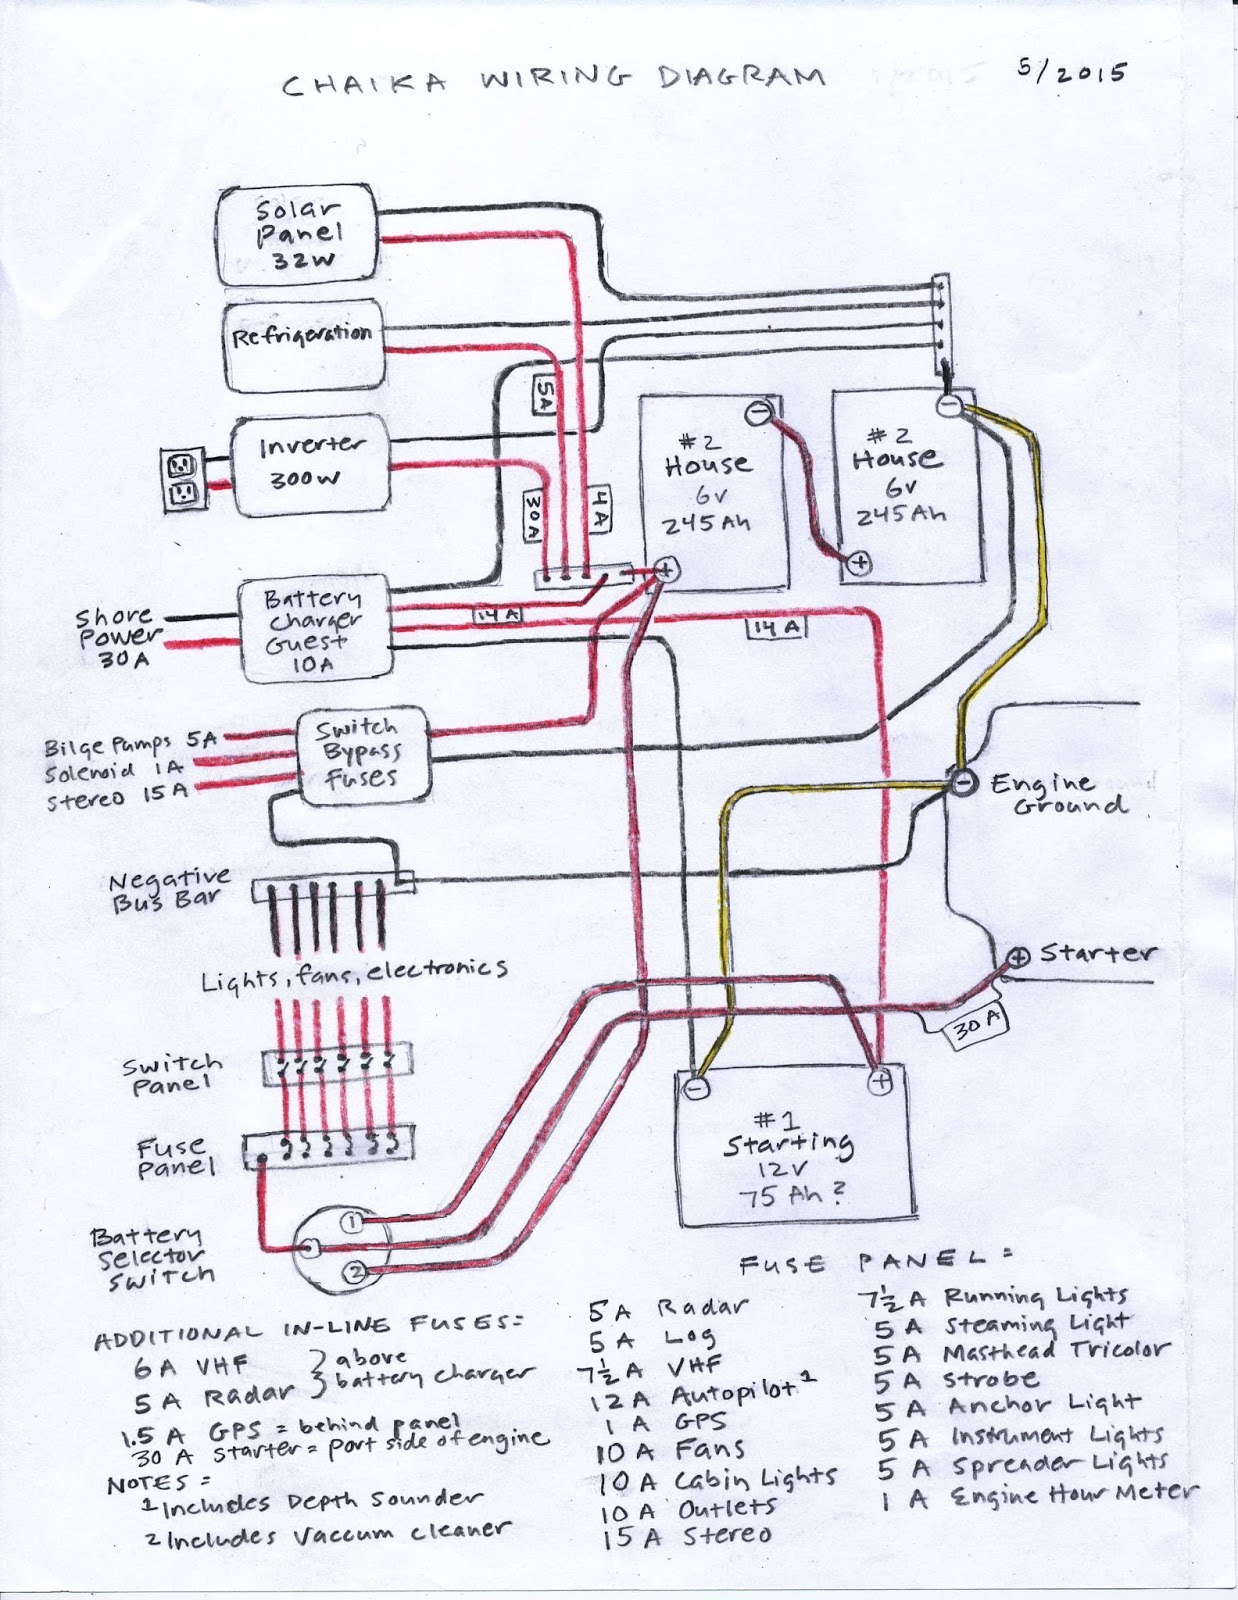 CHAIKA WIRING DIAGRAM 5/2015
Solar
Panel
32W
Refrigeration
Inverter
300W
5A
30A
4A
#2
House
6v
245Ah
#2
House
6v
245Ah
Shore
Power
30A
Battery
Charger
Guest
10A
14A
14A
Bilge Pumps 5A
Solenoid 1A
Stereo 15A
Switch
Bypass
Fuses
Engine
Ground
Negative
Bus Bar
Lights, fans, electronics
Starter
30A
Switch
Panel
Fuse
Panel
#1
Starting
12v
75 Ah?
Battery
Selector
Switch
1
2
ADDITIONAL IN-LINE FUSES=
6A VHF } above
5A Radar } battery charger
1.5A GPS = behind panel
30A Starter = port side of engine
NOTES=
1 Includes Depth Sounder
2 Includes Vaccum Cleaner
FUSE PANEL=
5A Radar
5A Log
7½A VHF
12A Autopilot1
1A GPS
10A Fans
10A Cabin Lights
10A Outlets
15A Stereo
7½A Running Lights
5A Steaming Light
5A Masthead Tricolor
5A Strobe
5A Anchor Light
5A Instrument Lights
5A Spreader Lights
1A Engine Hour Meter